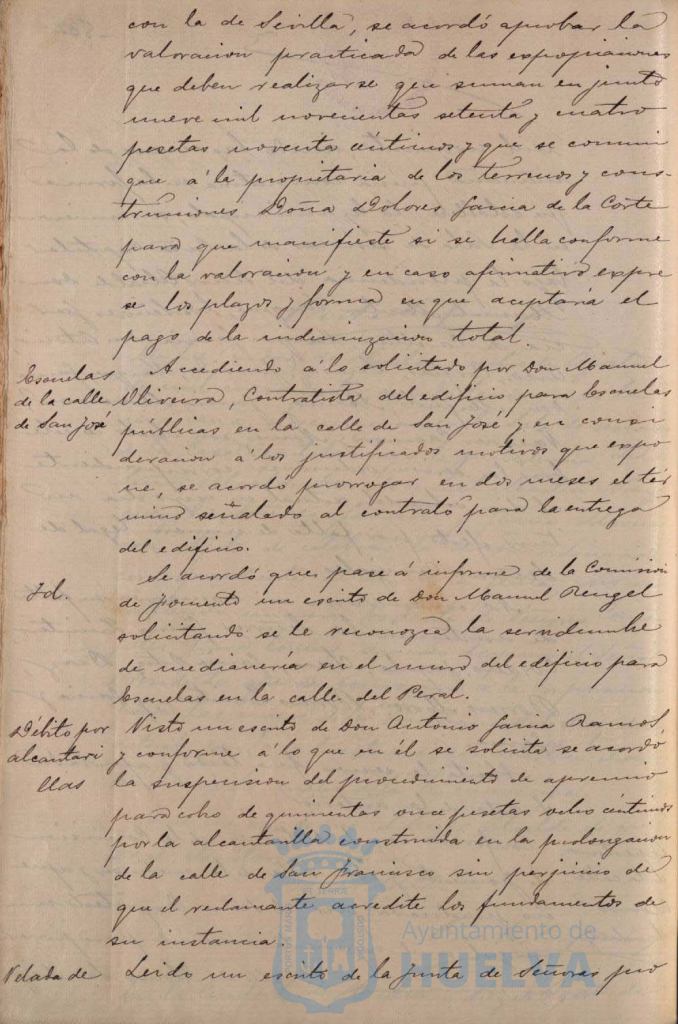 con la de Sevilla, se acordó aprobar la
valoracion practicada de las expropiaciones
que deben realizarse que suman en junto
nueve mil novecientas setenta y cuatro
pesetas noventa centimos y que se comuni
que á la propietaria de los terrenos y cons-
trucciones Doña Dolores Garcia de la Corte
para que manifieste si se halla conforme
con la valoracion y en caso afirmativo expre
se los plazos y forma en que aceptaria el
pago de la indemnizacion total.
Escuelas
de la calle
de San José
Accediendo á lo solicitado por Don Manuel
Oliveira, Contratista del edificio para Escuelas
públicas en la calle de San José y en consi
deracion á los justificados motivos que expo
ne, se acordó prorrogar en dos meses el tér
mino señalado al contrato para la entrega
del edificio.
Id.
Se acordó que pase á informe de la Comision
de fomento un escrito de Don Manuel Rengel
solicitando se le reconozca la servidumbre
de medianería en el muro del edificio para
Escuelas en la calle del Peral.
Débito por
alcantari
llas
Visto un escrito de Don Antonio Garcia Ramos
y conforme á lo que en él se solicita se acordó
la suspension del procedimiento de apremio
para cobro de quinientas once pesetas ocho céntimos
por la alcantarilla construida en la prolongacion
de la calle de San Francisco sin perjuicio de
que el reclamante acredite los fundamentos de
su instancia.
Velada de
Leido un escrito de la Junta de Señoras pro
Ayuntamiento de
HUELVA